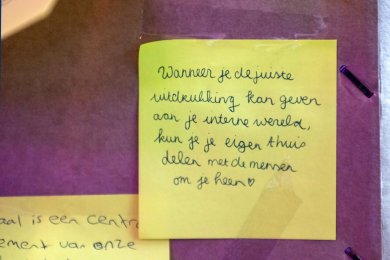 Wanneer je de juiste
uitdrukking kan geven
aan je interne wereld,
kun je je eigen thuis
delen met de mensen
om je heen ♡
aal is een centra
ement van onze